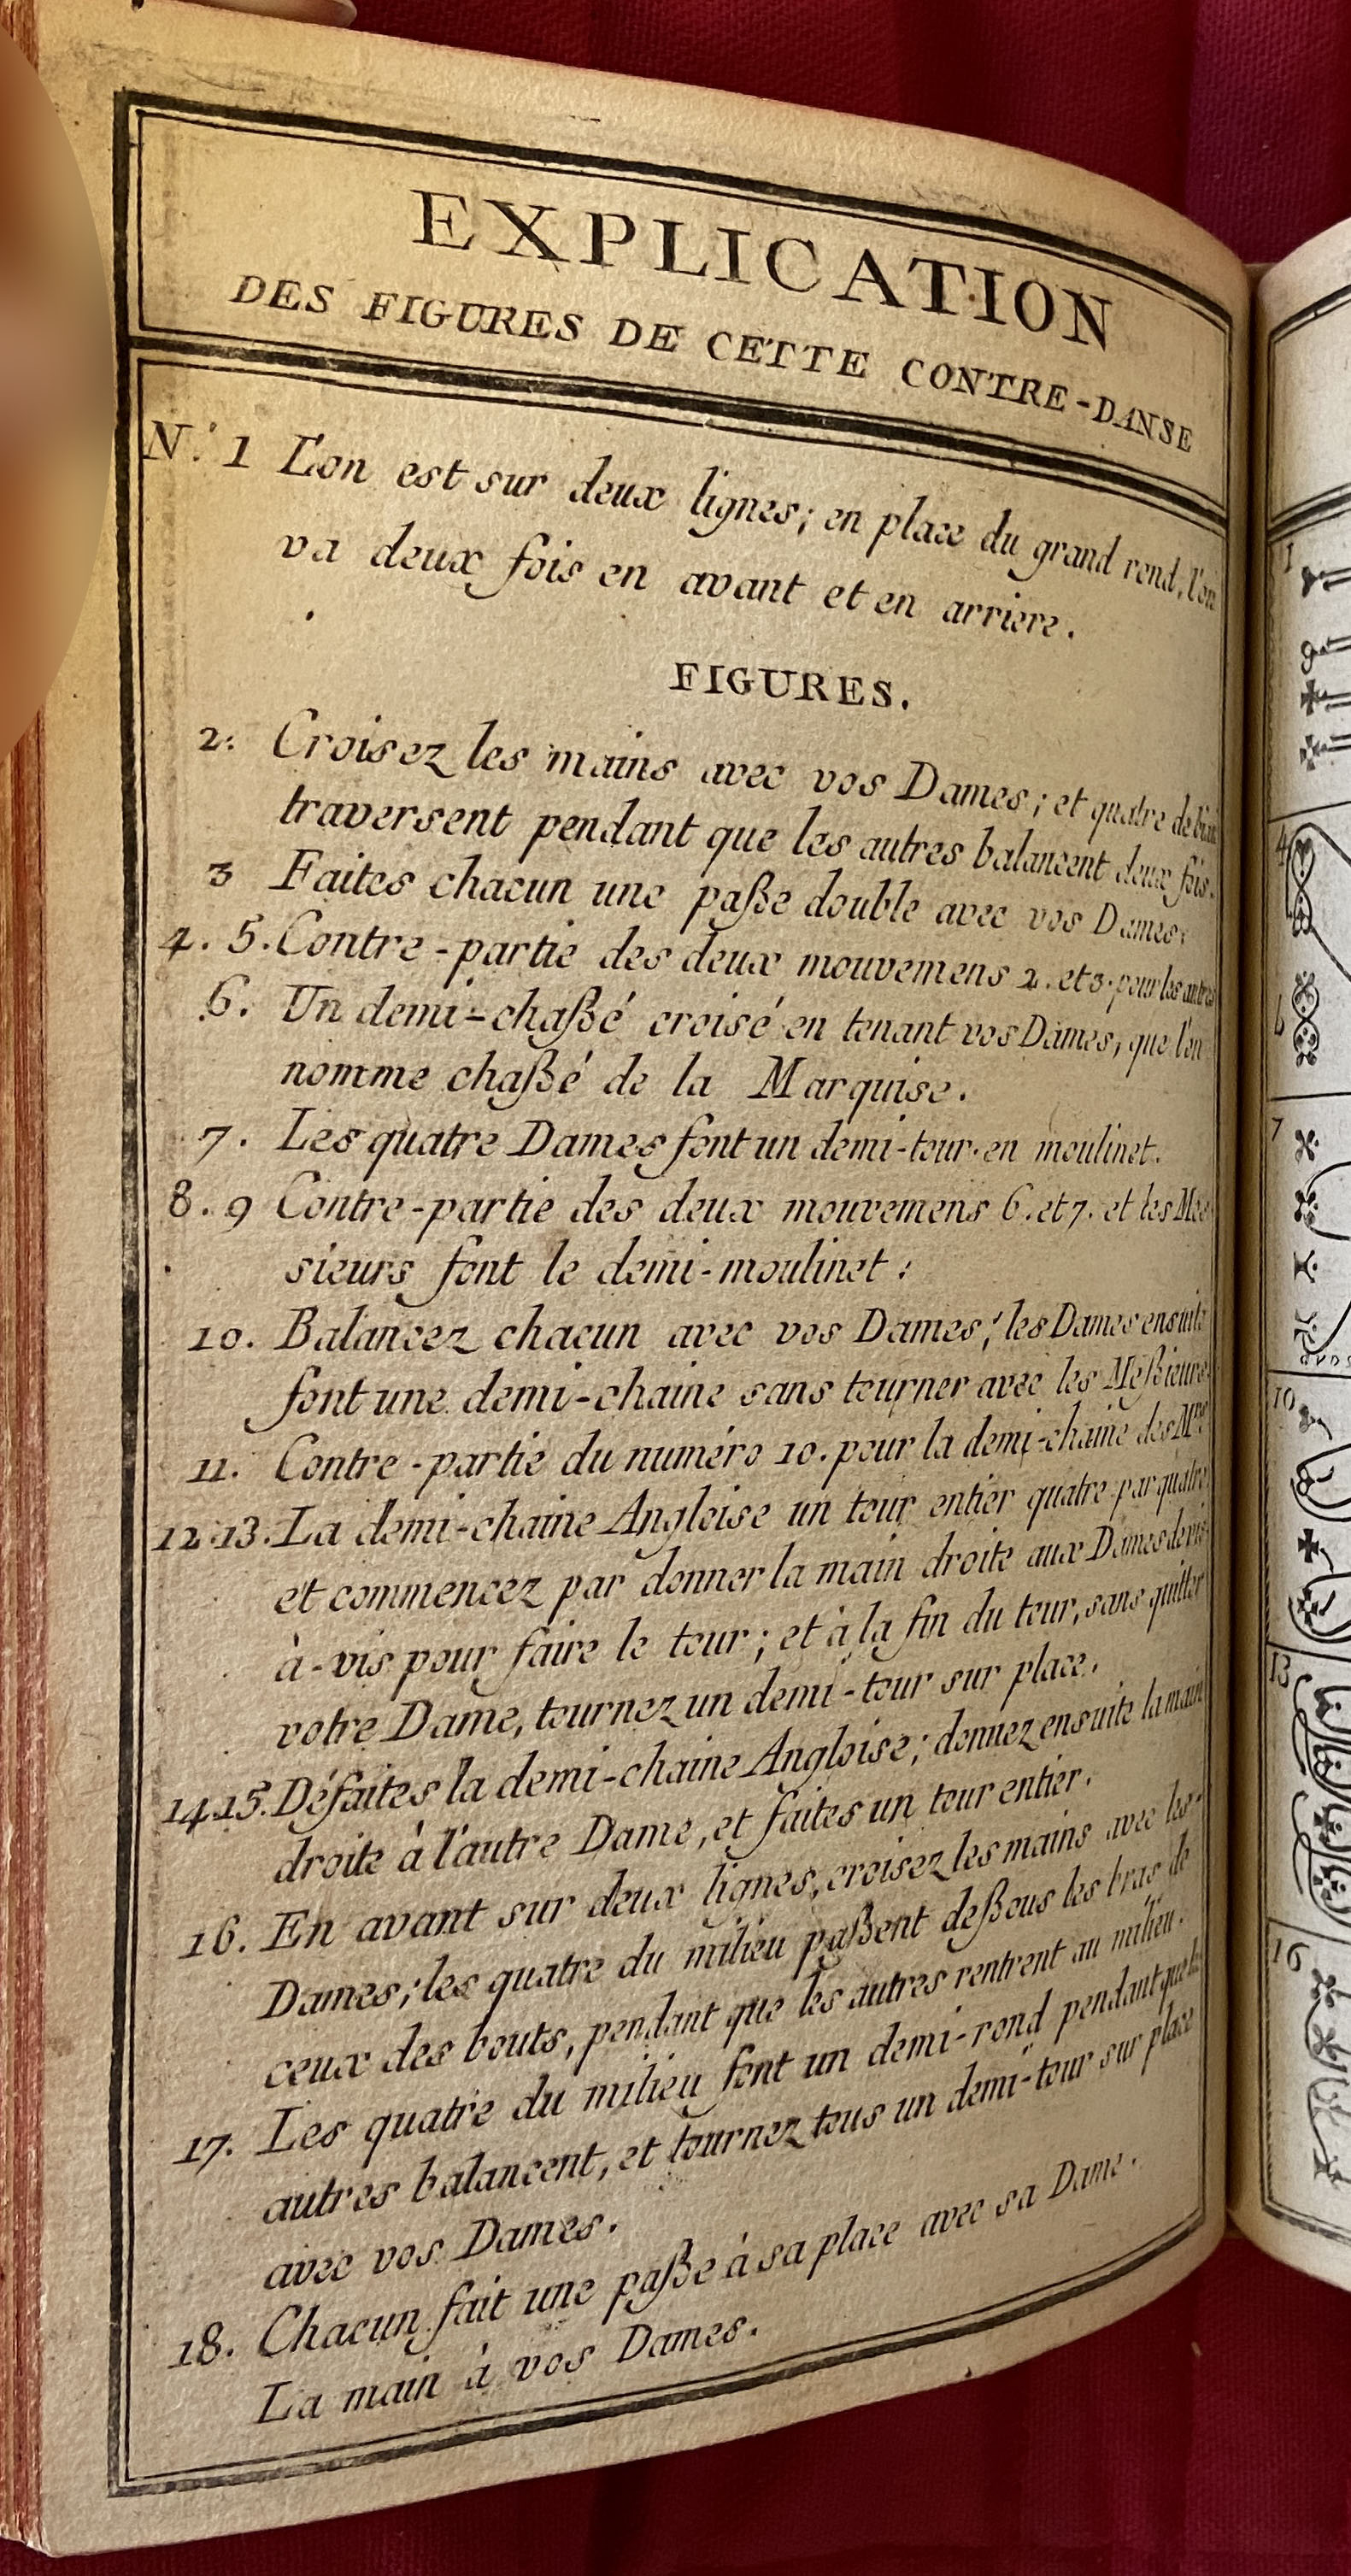 EXPLICATION
DES FIGURES DE CETTE CONTRE-DANSE
N.º 1 L'on est sur deux lignes; en place du grand rond, l'on
va deux fois en avant et en arriere.
FIGURES.
2. Croisez les mains avec vos Dames; et quatre de biais
traversent pendant que les autres balancent deux fois.
3 Faites chacun une paße double avec vos Dames.
4. 5. Contre-partie des deux mouvemens 2. et 3. pour les autres
6. Un demi-chaßé croisé en tenant vos Dames, que l'on
nomme chaßé de la Marquise.
7. Les quatre Dames font un demi-tour en moulinet.
8. 9 Contre-partie des deux mouvemens 6. et 7. et les Mes
sieurs font le demi-moulinet.
10. Balancez chacun avec vos Dames; les Dames ensuite
font une demi-chaine sans tourner avec les Meßieurs
11. Contre-partie du numéro 10. pour la demi-chaine des Mrs
12. 13. La demi-chaine Angloise un tour entier quatre par quatre
et commencez par donner la main droite aux Dames de vis-
à-vis pour faire le tour; et à la fin du tour, sans quitter
votre Dame, tournez un demi-tour sur place.
14. 15. Défaites la demi-chaine Angloise; donnez ensuite la main
droite à l'autre Dame, et faites un tour entier.
16. En avant sur deux lignes, croisez les mains avec les
Dames; les quatre du milieu paßent deßous les bras de
ceux des bouts, pendant que les autres rentrent au milieu.
17. Les quatre du milieu font un demi-rond pendant que les
autres balancent, et tournez tous un demi-tour sur place
avec vos Dames.
18. Chacun fait une paße à sa place avec sa Dame.
La main à vos Dames.
1
4
7
10
13
16